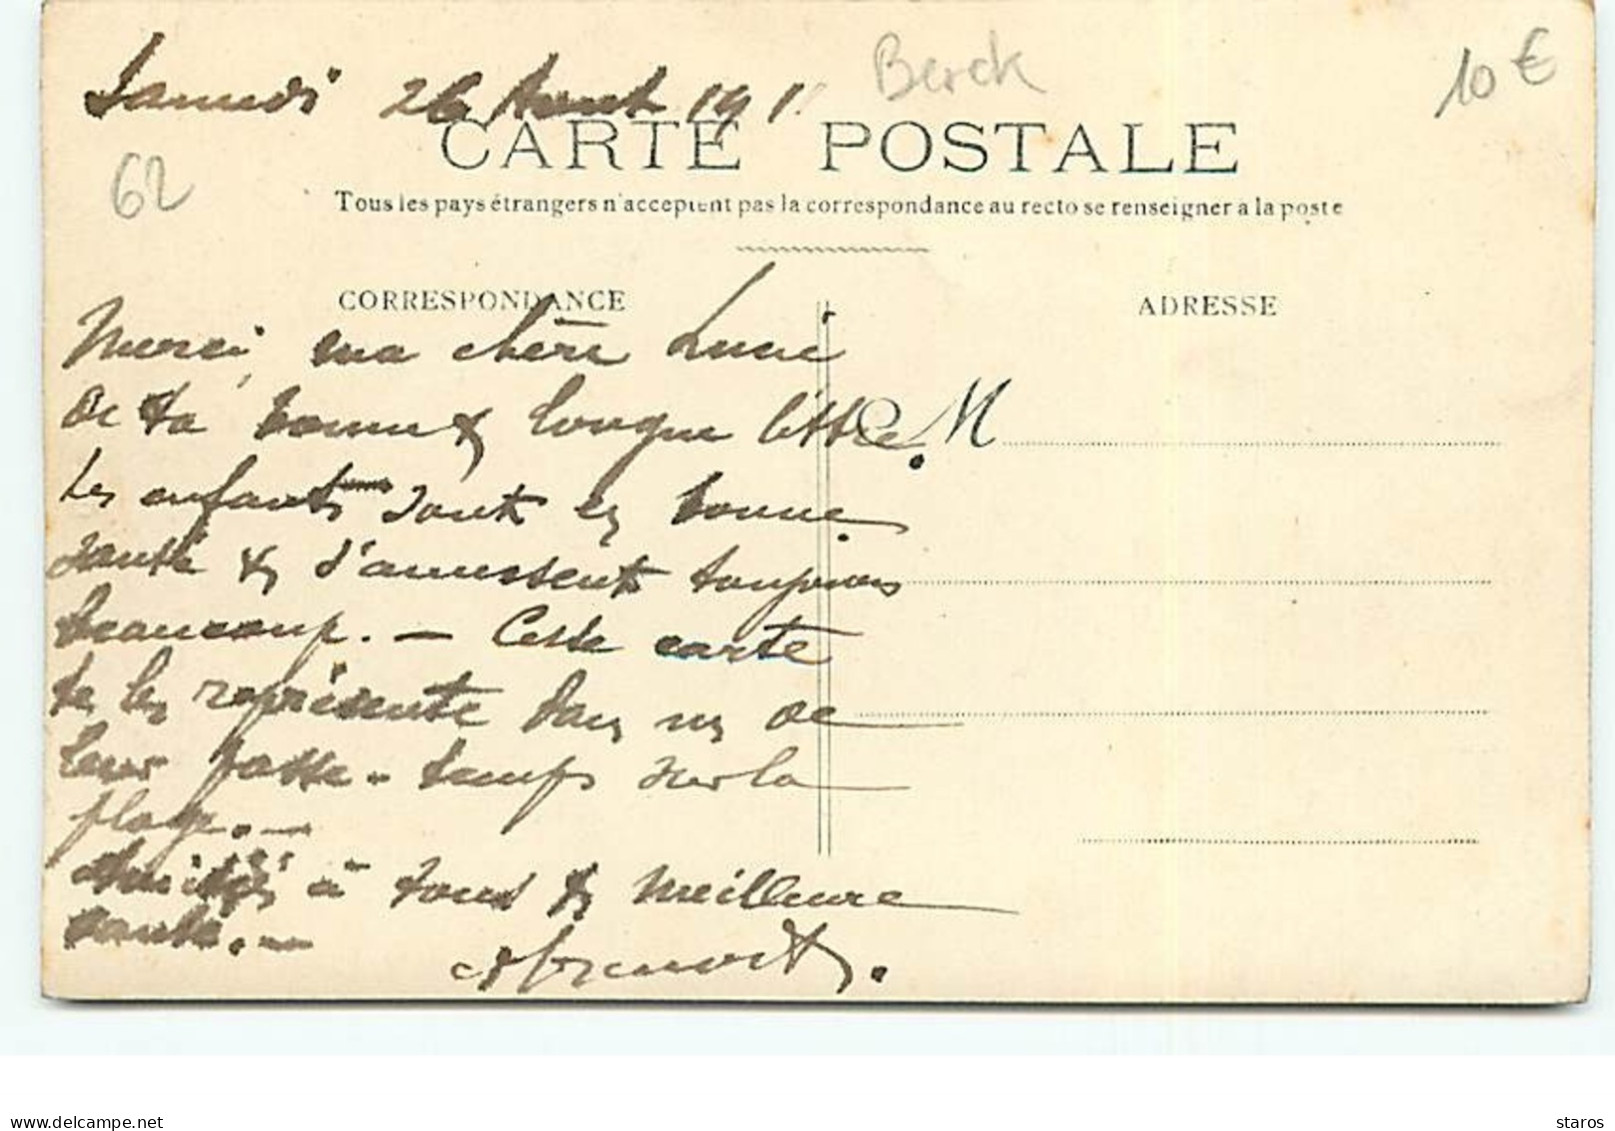 Samedi 26 Août 191
Berck
10 €
62
CARTE POSTALE
Tous les pays étrangers n'acceptent pas la correspondance au recto se renseigner a la poste
CORRESPONDANCE
ADRESSE
M
Merci, ma chère Lucie
de ta bonne & longue lettre.
Les enfants sont en bonne
santé & s'amusent toujours
beaucoup. — Cette carte
te les représente dans un de
leur passe-temps sur la
plage. —
Amitiés à tous & meilleure
santé. —
delcampe.net
staros